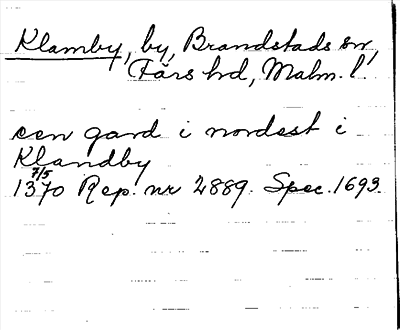 Klamby, by, Brandstads sn,
Färs hd, Malm. l.
een gard i nordest i
Klandby
7/5
1370 Rep. nr 2889. Spec. 1693.